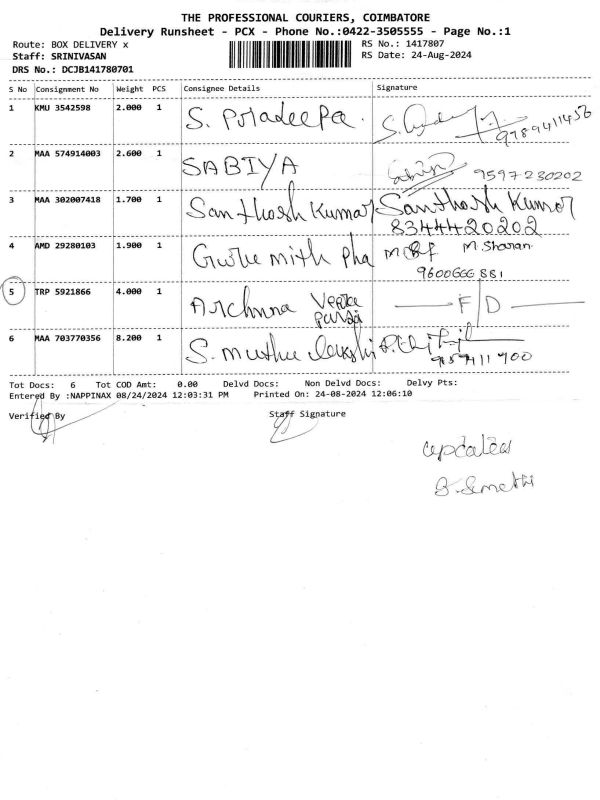 THE PROFESSIONAL COURIERS, COIMBATORE
Delivery Runsheet - PCX - Phone No.:0422-3505555 - Page No.:1
Route: BOX DELIVERY x RS No.: 1417807
Staff: SRINIVASAN RS Date: 24-Aug-2024
DRS No.: DCJB141780701
S No Consignment No Weight PCS Consignee Details Signature
1 KMU 3542598 2.000 1 S. Pradeepa. 9789411456
2 MAA 574914003 2.600 1 SABIYA 9597230202
3 MAA 302007418 1.700 1 Santhosh Kumar Santhosh Kumar
8344420202
4 AMD 29280103 1.900 1 Guru mith pha M. Sharan
9600666881
5 TRP 5921866 4.000 1 Archuna F/D
6 MAA 703770356 8.200 1 S. muthu
Tot Docs: 6 Tot COD Amt: 0.00 Delvd Docs: Non Delvd Docs: Delvy Pts:
Entered By :NAPPINAX 08/24/2024 12:03:31 PM Printed On: 24-08-2024 12:06:10
Verified By Staff Signature
updated